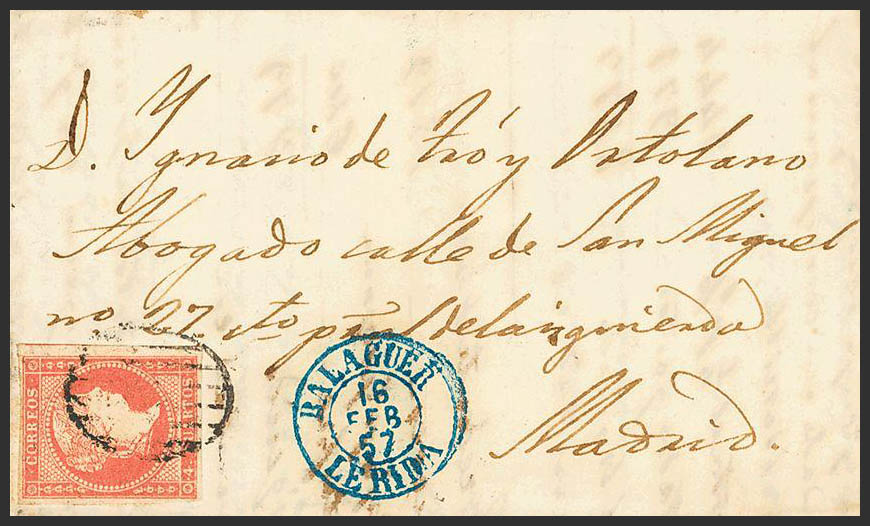 D. Ygnacio de Tró y Ortolano
Abogado calle de San Miguel
no 27. cto pral de la izquierda
Madrid.
CORREOS
4 CTOS
BALAGUER
16
FEB
57
LERIDA